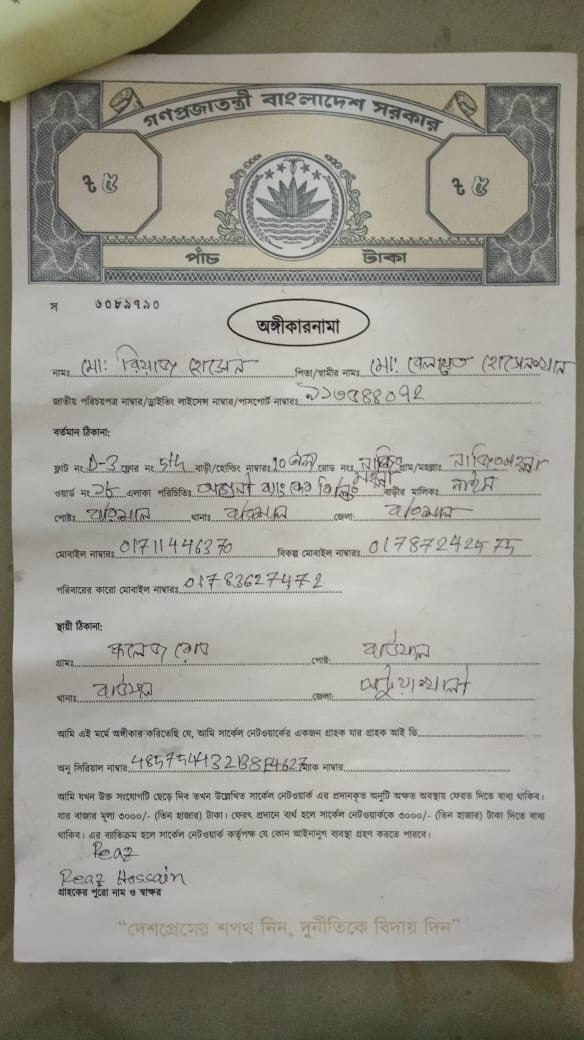 গণপ্রজাতন্ত্রী বাংলাদেশ সরকার
৳ ৫ ৳ ৫
পাঁচ টাকা
স ৬০৮৯৭৯০
অঙ্গীকারনামা
নামঃ মো: রিয়াজ হোসেন পিতা/স্বামীর নামঃ মো: বেলায়েত হোসেন
জাতীয় পরিচয়পত্র নাম্বার/ড্রাইভিং লাইসেন্স নাম্বার/পাসপোর্ট নাম্বারঃ
বর্তমান ঠিকানা:
ফ্লাট নং D-3 ফ্লোর নং 5th বাড়ী/হোল্ডিং নাম্বারঃ 10 তলা রোড নংঃ গ্রাম/মহল্লাঃ
ওয়ার্ড নং এলাকা পরিচিতিঃ বাড়ীর মালিকঃ
পোষ্টঃ বরিশাল থানাঃ বরিশাল জেলাঃ বরিশাল
মোবাইল নাম্বারঃ 01711446370 বিকল্প মোবাইল নাম্বারঃ 01787242575
পরিবারের কারো মোবাইল নাম্বারঃ 01783627472
স্থায়ী ঠিকানা:
গ্রামঃ কলেজ রোড পোষ্ট: বাউফল
থানাঃ বাউফল জেলা: পটুয়াখালী
আমি এই মর্মে অঙ্গীকার করিতেছি যে, আমি সার্কেল নেটওয়ার্কের একজন গ্রাহক যার গ্রাহক আই ডি
অনু সিরিয়াল নাম্বার 485754432B8F4627 ম্যাক নাম্বার
আমি যখন উক্ত সংযোগটি ছেড়ে দিব তখন উল্লেখিত সার্কেল নেটওয়ার্ক এর প্রদানকৃত অনুটি অক্ষত অবস্থায় ফেরত দিতে বাধ্য থাকিব।
যার বাজার মূল্য ৩০০০/- (তিন হাজার) টাকা। ফেরৎ প্রদানে ব্যর্থ হলে সার্কেল নেটওয়ার্ককে ৩০০০/- (তিন হাজার) টাকা দিতে বাধ্য
থাকিব। এর ব্যতিক্রম হলে সার্কেল নেটওয়ার্ক কর্তৃপক্ষ যে কোন আইনানুগ ব্যবস্থা গ্রহণ করতে পারবে।
Reaz
Reaz Hossain
গ্রাহকের পুরো নাম ও স্বাক্ষর
“দেশপ্রেমের শপথ নিন, দুর্নীতিকে বিদায় দিন”